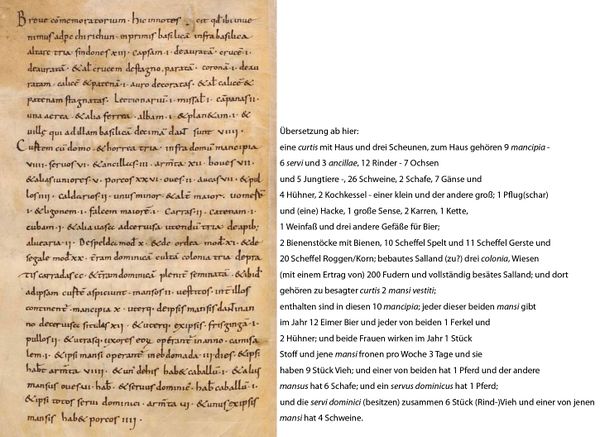 Breue cōmemoratorium · hic innotescit qđ ibi inue
nimus ad pechirichun · inprimis basilica infra basilica
altare tria sindones xii · capsam · i · deauratā · crucē · i ·
deauratā · & al crucem de stagno parata · coronā · i · deau
ratam · calicē & patenā · i · auro decoratas · & al calicē &
patenam stagnatas · Lectionariū · i · missal · i · capanas · ii ·
una aerea & alia ferrea · albam · i · & planetam · i · &
uille qui ad illam basilica decimā dant sunt · viiii ·
Curtem cū domo & horrea tria · infra domū mancipia
viiii · seruos vi · & ancillas · iii · arm̄ta xii · boues vii ·
& alias iuniores v · porcos xxvi · oues · ii · aucas vii · & pul
los iiii · caldarios · ii · unus minor & alt maior · uomer
i · & ligonem · i · falcem maiorē · i · Carras · ii · catenam · i ·
cubam · i · & alia uasc ad ceruisa utendū tria · de apib;
aluearia · ii · De spelde mod · x · & de ordea mod · xi · & de
segale mod · xx · t̄ram dominicā culta colonia tria de pra
tis carradas cc · & t̄ram dominicam pleniť seminatā · & ibid
ad ipsam curtē aspiciunt · mansos · ii · uestitos · int illos
continent mancipia x · uterq; de ipsis mansis dant in an
no de ceruise situlas xii · & uterq; ex ipsis frisginga · i ·
pullos · ii · & utrasq; uxores eorum operant in anno · camisa
lem · i · & ipsi mansi operant in ebdomada · iii · dies · & ipsi
habent arm̄ta viiii · & un dehis hab& caballū · i · & alius
mansus oues · vi · hab& · & seruus dominic̄ hab& caballū · i ·
& ipsi totos serui dominici · arm̄ta vi · & unus ex ipsis
mansis hab& porcos iiii ·
Übersetzung ab hier:
eine curtis mit Haus und drei Scheunen, zum Haus gehören 9 mancipia -
6 servi und 3 ancillae, 12 Rinder - 7 Ochsen
und 5 Jungtiere -, 26 Schweine, 2 Schafe, 7 Gänse und
4 Hühner, 2 Kochkessel - einer klein und der andere groß; 1 Pflug(schar)
und (eine) Hacke, 1 große Sense, 2 Karren, 1 Kette,
1 Weinfaß und drei andere Gefäße für Bier;
2 Bienenstöcke mit Bienen, 10 Scheffel Spelt und 11 Scheffel Gerste und
20 Scheffel Roggen/Korn; bebautes Salland (zu?) drei colonia, Wiesen
(mit einem Ertrag von) 200 Fudern und vollständig besätes Salland; und dort
gehören zu besagter curtis 2 mansi vestiti;
enthalten sind in diesen 10 mancipia; jeder dieser beiden mansi gibt
im Jahr 12 Eimer Bier und jeder von beiden 1 Ferkel und
2 Hühner; und beide Frauen wirken im Jahr 1 Stück
Stoff und jene mansi fronen pro Woche 3 Tage und sie
haben 9 Stück Vieh; und einer von beiden hat 1 Pferd und der andere
mansus hat 6 Schafe; und ein servus dominicus hat 1 Pferd;
und die servi dominici (besitzen) zusammen 6 Stück (Rind-)Vieh und einer von jenen
mansi hat 4 Schweine.